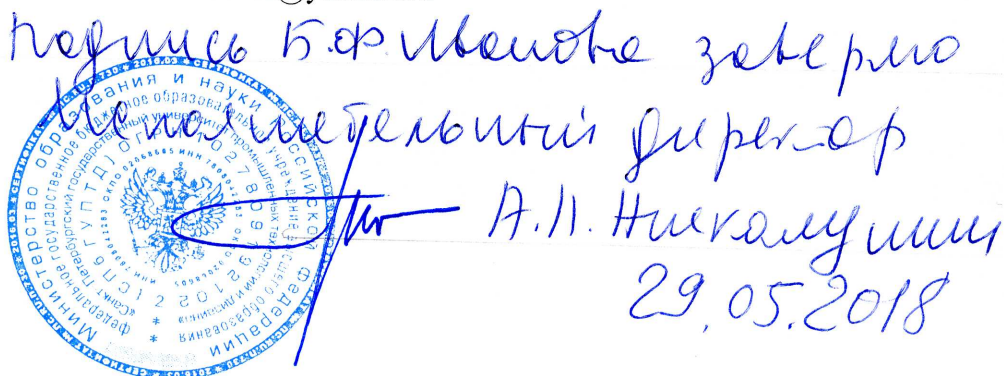 Подпись Б.Ф. Иванова заверяю
Исполнительный директор
А.П. Никалушин
29.05.2018
Министерство образования и науки Российской Федерации
федеральное государственное бюджетное образовательное учреждение высшего образования
«Санкт-Петербургский государственный университет промышленных технологий и дизайна»
(СПбГУПТД)